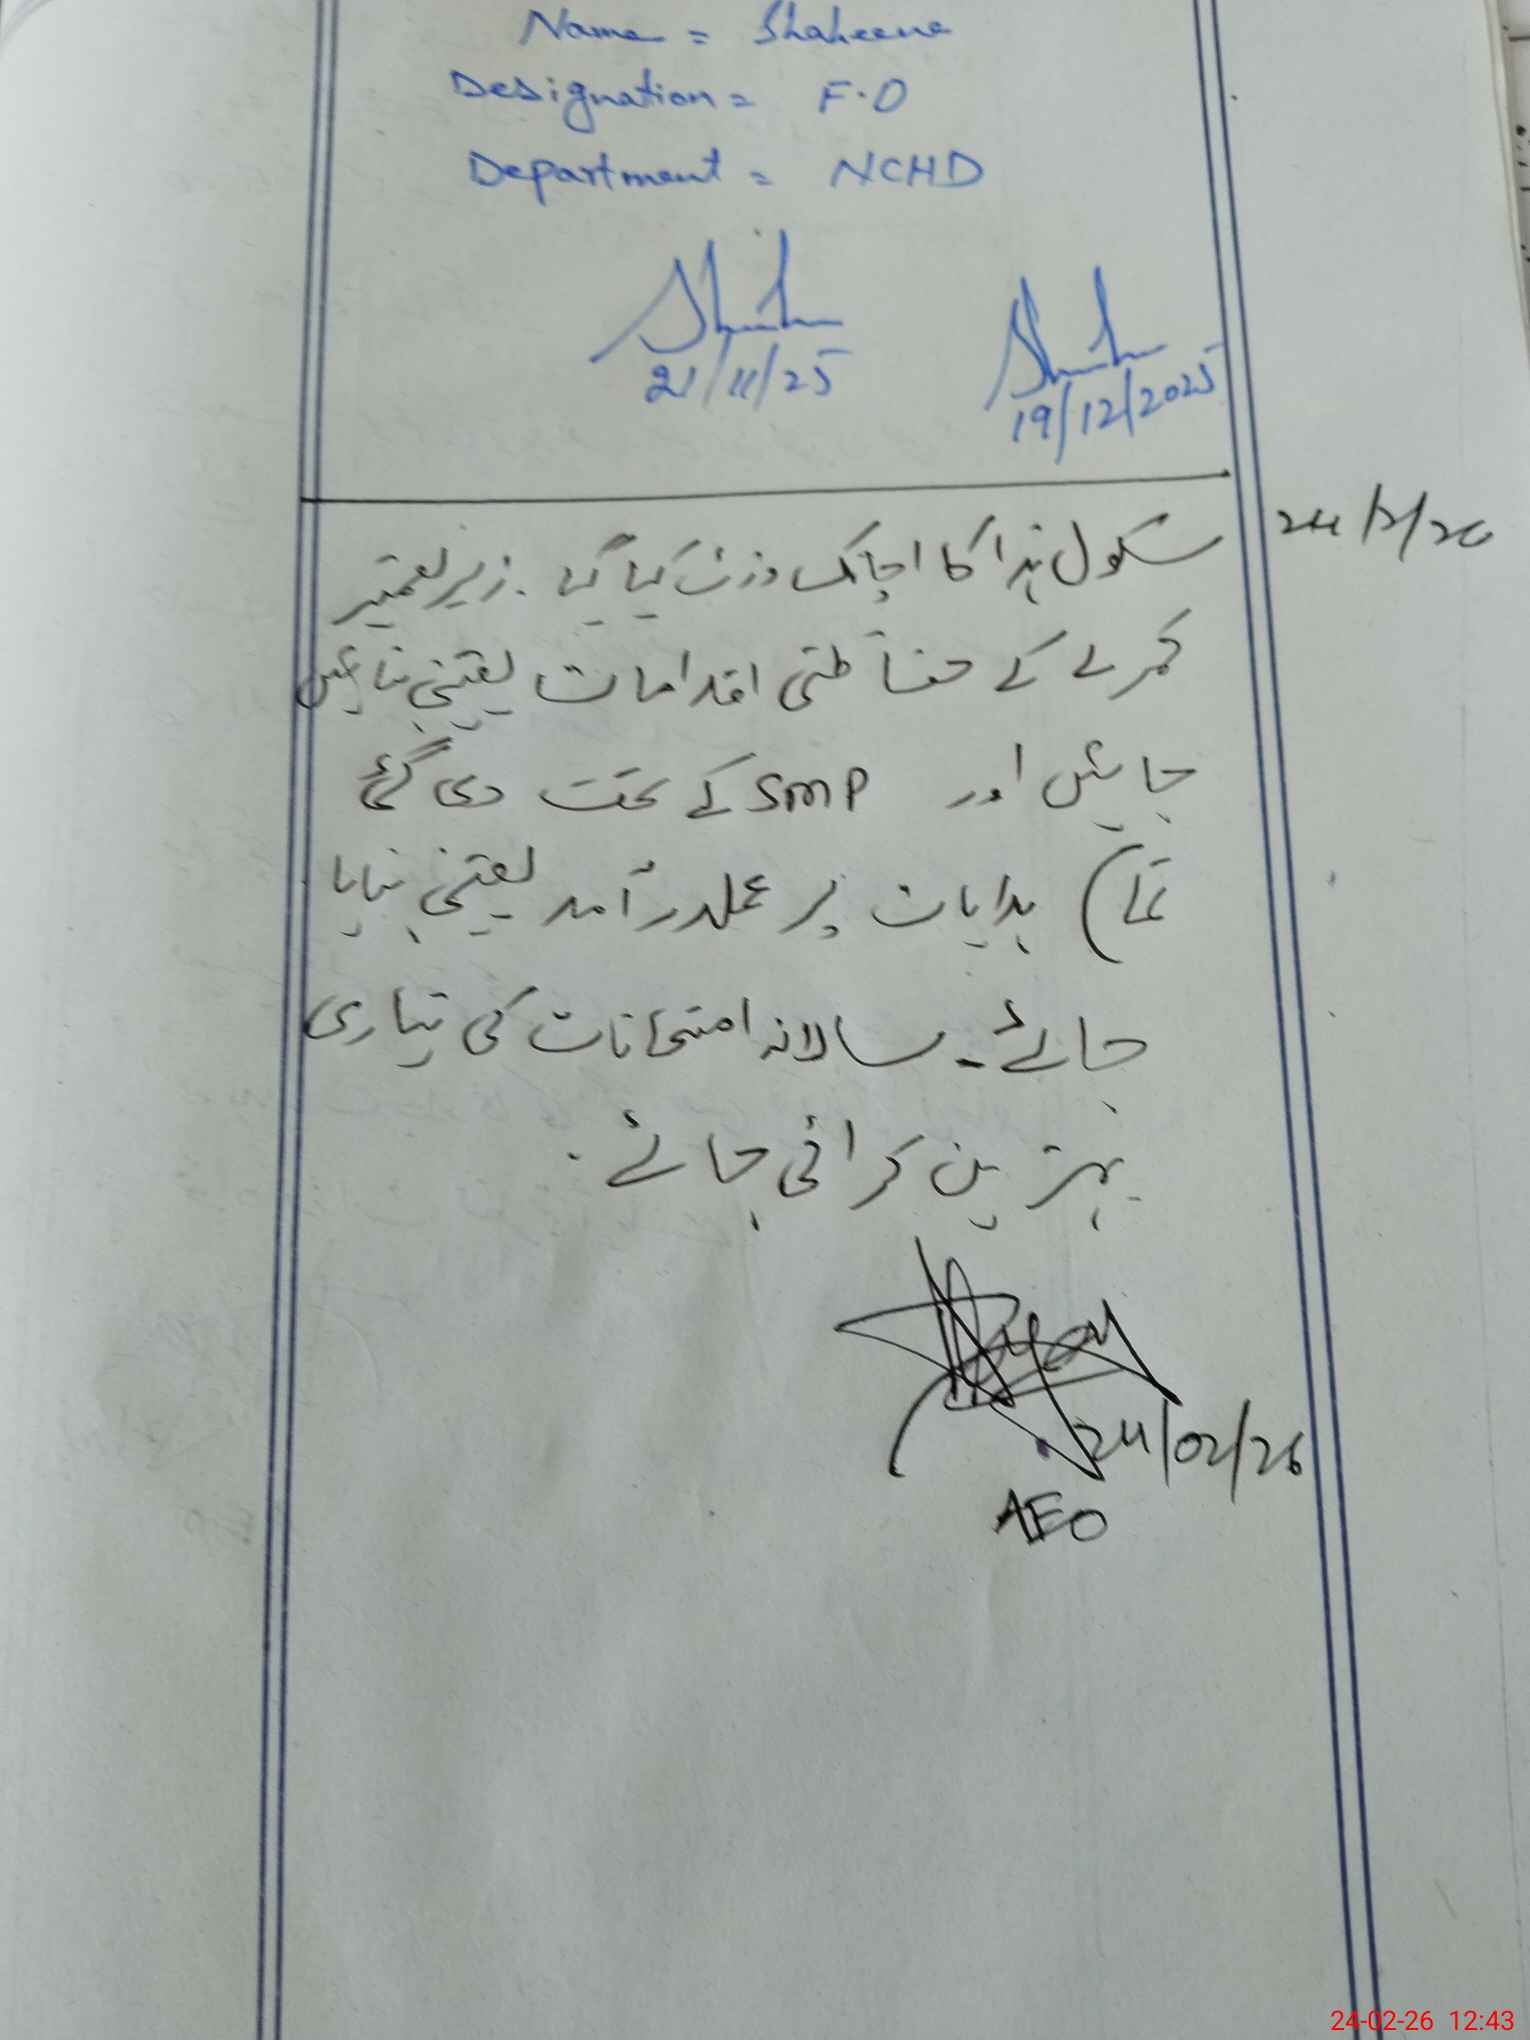 Name = Shaheena
Designation = F.O
Department = NCHD
21/11/25
19/12/2025
24/2/26
سکول ہذا کا اچانک وزٹ کیا گیا ۔ زیر تعمیر
کمرے کے حفاظتی اقدامات یقینی بنائیں
جائیں اور SMP کے تحت دی گئی
تمام ہدایات پر عملدرآمد یقینی بنایا
جائے۔ سالانہ امتحانات کی تیاری
بہترین کرائی جائے ۔
24/02/26
AEO
24-02-26 12:43